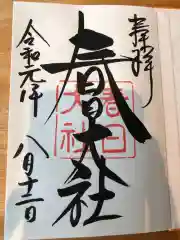 奉拝
春日大社
春日大社
令和元年
八月十二日